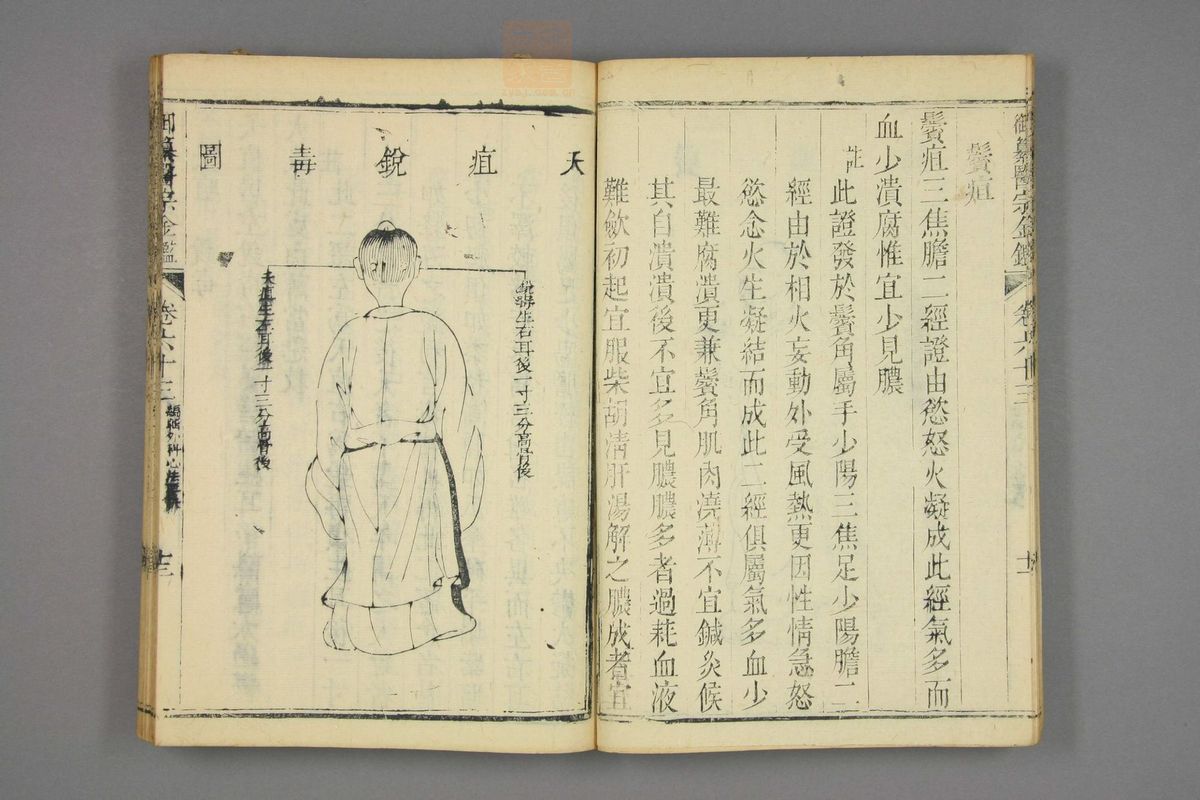 御纂醫宗金鑑 卷六十三 十二
鬢疽
鬢疽三焦膽二經證由慾怒火凝成此經氣多而
血少潰腐惟宜少見膿
註
此證發於鬢角屬手少陽三焦足少陽膽二
經由於相火妄動外受風熱更因性情急怒
慾念火生凝結而成此二經俱屬氣多血少
最難腐潰更兼鬢角肌肉澆薄不宜鍼灸候
其自潰潰後不宜多見膿膿多者過耗血液
難斂初起宜服柴胡清肝湯解之膿成者宜
天疽銳毒圖
銳毒生右耳後一寸三分高骨後
天疽生左耳後一寸三分高骨後
御纂醫宗金鑑 卷六十三
十三